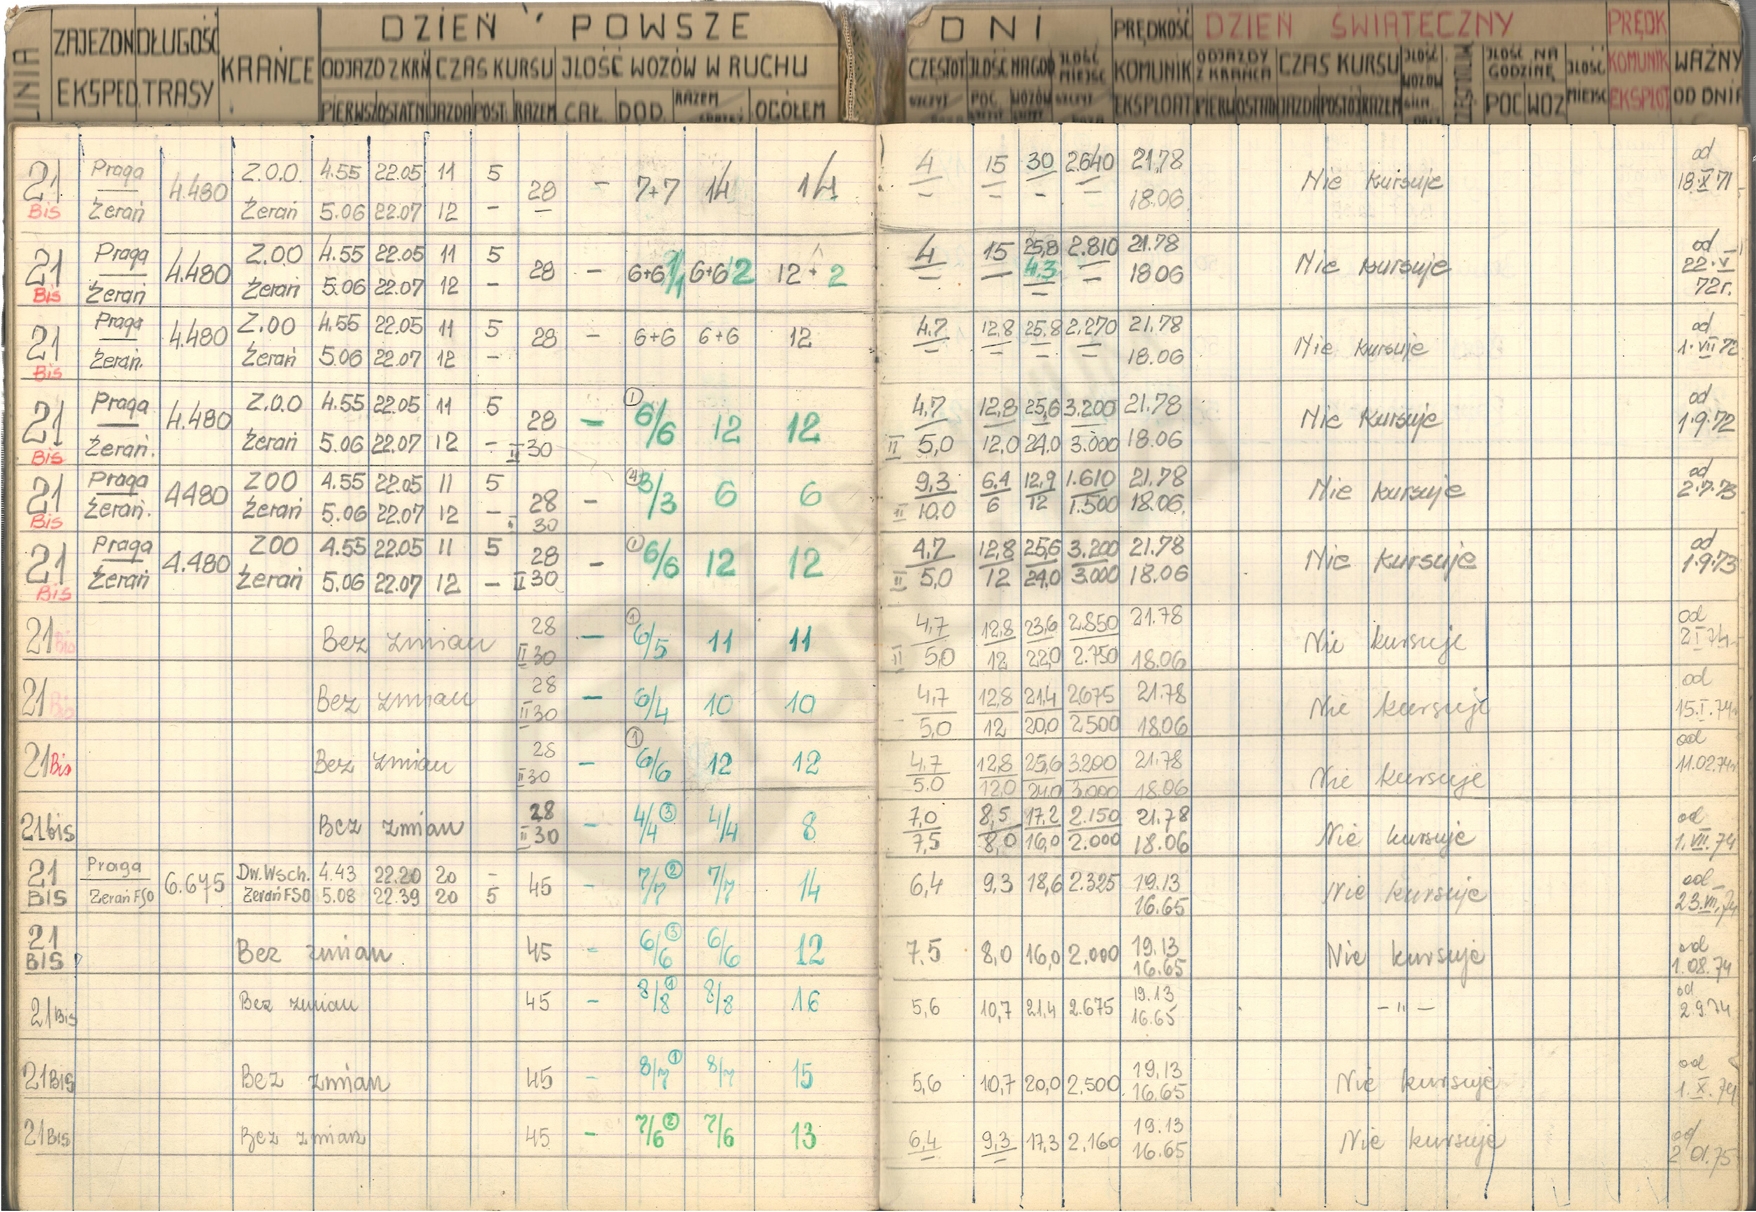 LINIA ZAJEZDN DŁUGOŚĆ KRAŃCE DZIEŃ POWSZE DNI PRĘDKOŚĆ DZIEŃ ŚWIĄTECZNY PRĘDK WAŻNY
EKSPED. TRASY ODJAZD Z KRŃ CZAS KURSU JLOŚĆ WOZÓW W RUCHU CZĘSTOT JLOŚĆ NA GOD JLOŚĆ MIEJSC KOMUNIK ODJAZDY Z KRAŃCA CZAS KURSU JLOŚĆ WOZÓW JLOŚĆ NA GODZINĘ JLOŚĆ MIEJSC KOMUNIK OD DNIA
PIERWSZ OSTATNI JAZDA POST. RAZEM CAŁ. DOD. RAZEM OGÓŁEM SZCZYT POC. WOZÓW SZCZYT EKSPLOAT PIERW OSTAT JAZDA POSTÓJ RAZEM POC WOZ EKSPLOT
21 Bis Praga Żerań 4.480 Z.O.O. 4.55 22.05 11 5 28 – 7+7 14 14 4 15 30 2640 21.78 Nie kursuje od 18.X.71
Żerań 5.06 22.07 12 – – – – – – 18.06
21 Bis Praga Żerań 4.480 Z.OO 4.55 22.05 11 5 28 – 6+6 1/1 6+6/2 12+2 4 15 25,8 2.810 21.78 Nie kursuje od 22.V 72r.
Żerań 5.06 22.07 12 – – – 4.3 – 18.06
21 Bis Praga Żerań. 4.480 Z.OO 4.55 22.05 11 5 28 – 6+6 6+6 12 4.7 12,8 25.8 2.270 21.78 Nie kursuje od 1.VII 72
Żerań 5.06 22.07 12 – – – – – 18.06
21 Bis Praga Żerań. 4.480 Z.O.O 4.55 22.05 11 5 28 – ① 6/6 12 12 4,7 12,8 25,6 3.200 21.78 Nie Kursuje od 1.9.72
Żerań 5.06 22.07 12 – II 30 II 5,0 12,0 24,0 3.000 18.06
21 Bis Praga Żerań. 4480 ZOO 4.55 22.05 11 5 28 – ④ 3/3 6 6 9,3 6,4 12,9 1.610 21.78 Nie kursuje od 2.7.73
Żerań 5.06 22.07 12 – 30 II 10,0 6 12 1.500 18.06.
21 Bis Praga Żerań 4.480 ZOO 4.55 22.05 11 5 28 – ① 6/6 12 12 4,7 12,8 25,6 3.200 21.78 Nie kursuje od 1.9.73
Żerań 5.06 22.07 12 – II 30 II 5,0 12 24,0 3.000 18.06
21 Bis Bez zmian 28 – ① 6/5 11 11 4,7 12,8 23,6 2.850 21.78 Nie kursuje od 2 I 74
II 30 II 5,0 12 22,0 2.750 18.06
21 Bis Bez zmian 28 – 6/4 10 10 4,7 12,8 21,4 2675 21.78 Nie kursuje od 15.I.74
II 30 5,0 12 20,0 2500 18.06
21 Bis Bez zmian 28 – ① 6/6 12 12 4.7 12,8 25,6 3.200 21.78 Nie kursuje od 11.02.74
II 30 5.0 12,0 24,0 3.000 18.06
21 bis Bez zmian 28 – 4/4 ③ 4/4 8 7,0 8,5 17,2 2.150 21.78 Nie kursuje od 1.VII.74
II 30 7,5 8,0 16,0 2.000 18.06
21 BIS Praga Żerań FSO 6.675 Dw. Wsch. 4.43 22.20 20 – 45 – 7/7 ② 7/7 14 6,4 9,3 18,6 2.325 19.13 Nie kursuje od 23.VII.74
Żerań FSO 5.08 22.39 20 5 16.65
21 BIS Bez zmian 45 – 6/6 ③ 6/6 12 7.5 8,0 16,0 2.000 19.13 Nie kursuje od 1.08.74
16.65
21 Bis Bez zmian 45 – 8/8 8/8 16 5,6 10,7 21,4 2.675 19.13 – " – od 2.9.74
16.65
21 BIS Bez zmian 45 – 8/7 ① 8/7 15 5,6 10,7 20,0 2.500 19.13 Nie kursuje od 1.X.74
16.65
21 BIS Bez zmian 45 – 7/6 ② 7/6 13 6,4 9,3 17,3 2.160 19.13 Nie kursuje od 2 01.75
16.65